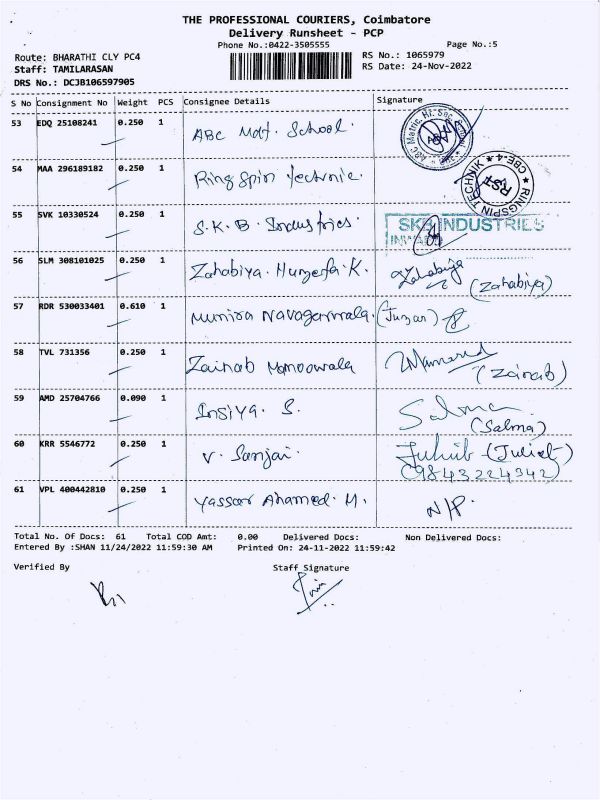 THE PROFESSIONAL COURIERS, Coimbatore
Delivery Runsheet - PCP
Phone No.:0422-3505555
Page No.:5
Route: BHARATHI CLY PC4
RS No.: 1065979
Staff: TAMILARASAN
RS Date: 24-Nov-2022
DRS No.: DCJB106597905
S No Consignment No Weight PCS Consignee Details Signature
53 EDQ 25108241 0.250 1 ABC Mat. School.
54 MAA 296189182 0.250 1 Ring Spin Technic. RINGSPIN TECHNIK CBE-4 RST
55 SVK 10330524 0.250 1 S.K.B. Industries. SKB INDUSTRIES
INWARD
56 SLM 308101025 0.250 1 Zahabiya. Huzefa. K. Zahabiya
(Zahabiya)
57 RDR 530033401 0.610 1 Munira Navagarwala. (Juzar)
58 TVL 731356 0.250 1 Zainab Mamoowala
(Zainab)
59 AMD 25704766 0.090 1 Insiya. S. Salma
(Salma)
60 KRR 5546772 0.250 1 V. Sanjai. (Juliet)
(9843224342)
61 VPL 400442810 0.250 1 Yassar Ahamed. M. N/P.
Total No. Of Docs: 61 Total COD Amt: 0.00 Delivered Docs: Non Delivered Docs:
Entered By :SHAN 11/24/2022 11:59:30 AM Printed On: 24-11-2022 11:59:42
Verified By Staff Signature